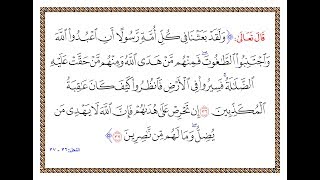 قَالَ تَعَالَى: ﴿ وَلَقَدْ بَعَثْنَا فِي كُلِّ أُمَّةٍ رَّسُولًا أَنِ اعْبُدُوا اللَّهَ
وَاجْتَنِبُوا الطَّاغُوتَ فَمِنْهُم مَّنْ هَدَى اللَّهُ وَمِنْهُم مَّنْ حَقَّتْ عَلَيْهِ
الضَّلَالَةُ فَسِيرُوا فِي الْأَرْضِ فَانظُرُوا كَيْفَ كَانَ عَاقِبَةُ
الْمُكَذِّبِينَ ۝٣٦ إِن تَحْرِصْ عَلَى هُدَاهُمْ فَإِنَّ اللَّهَ لَا يَهْدِي مَن
يُضِلُّ وَمَا لَهُم مِّن نَّاصِرِينَ ۝٣٧ ﴾
النحل: ٣٦ - ٣٧